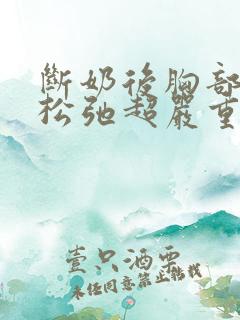 斷奶後胸部
松弛超嚴重
壹只酒雫
未任同意禁止轉載